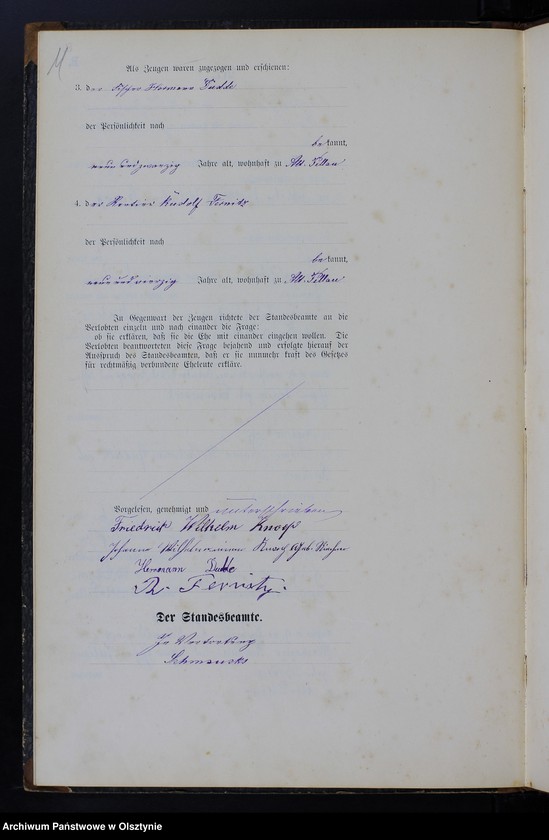 11
Als Zeugen waren zugezogen und erschienen:
3. der Fischer Hermann Dudde
der Persönlichkeit nach
bekannt,
neun und zwanzig Jahre alt, wohnhaft zu Alt. Pillau
4. der Rentier Rudolf Fernitz
der Persönlichkeit nach
bekannt,
neun und vierzig Jahre alt, wohnhaft zu Alt. Pillau
In Gegenwart der Zeugen richtete der Standesbeamte an die
Verlobten einzeln und nach einander die Frage:
ob sie erklären, daß sie die Ehe mit einander eingehen wollen. Die
Verlobten beantworteten diese Frage bejahend und erfolgte hierauf der
Ausspruch des Standesbeamten, daß er sie nunmehr kraft des Gesetzes
für rechtmäßig verbundene Eheleute erkläre.
Vorgelesen, genehmigt und unterschrieben
Friedrich Wilhelm Knopf
Johanna Wilhelmine Knopf geb.
Hermann Dudde
R. Fernitz.
Der Standesbeamte.
In Vertretung
Archiwum Państwowe w Olsztynie